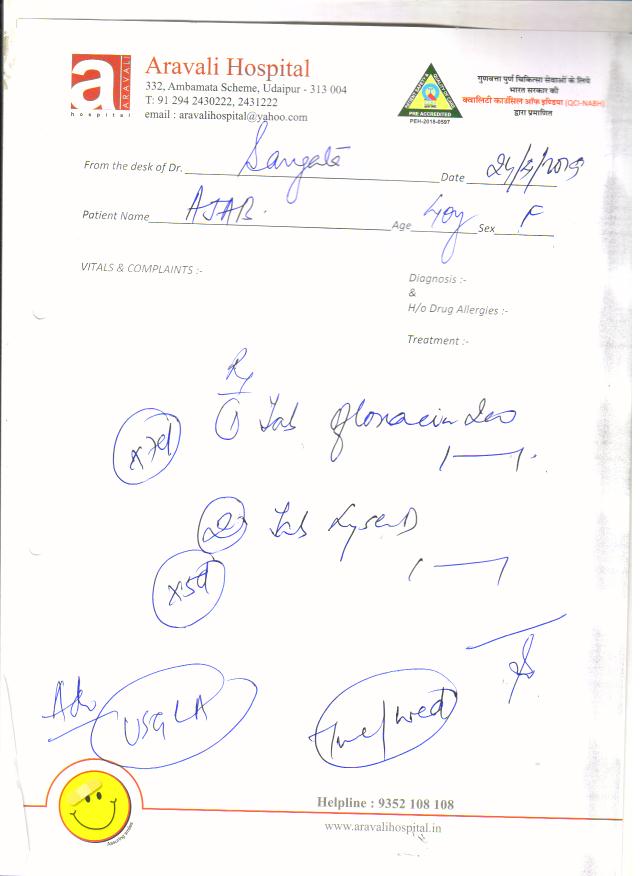 a
ARAVALI
hospital
Aravali Hospital
332, Ambamata Scheme, Udaipur - 313 004
T: 91 294 2430222, 2431222
email : aravalihospital@yahoo.com
PRE ACCREDITED
PEH-2018-0597
गुणवत्ता पुर्ण चिकित्सा सेवाओं के लिये
भारत सरकार की
क्वालिटी काउंसिल ऑफ इण्डिया (QCI-NABH)
द्वारा प्रमाणित
From the desk of Dr. Sangeeta Date 24/4/2019
Patient Name AJAB. Age 40y Sex F
VITALS & COMPLAINTS :-
Diagnosis :-
&
H/o Drug Allergies :-
Treatment :-
Rx
① Tab Ofloxacin 200
x7d
1—1
② Tab Lyser D
x5d
1—1
Adv USG LA
Tue/Wed
Helpline : 9352 108 108
www.aravalihospital.in
Assuring smiles